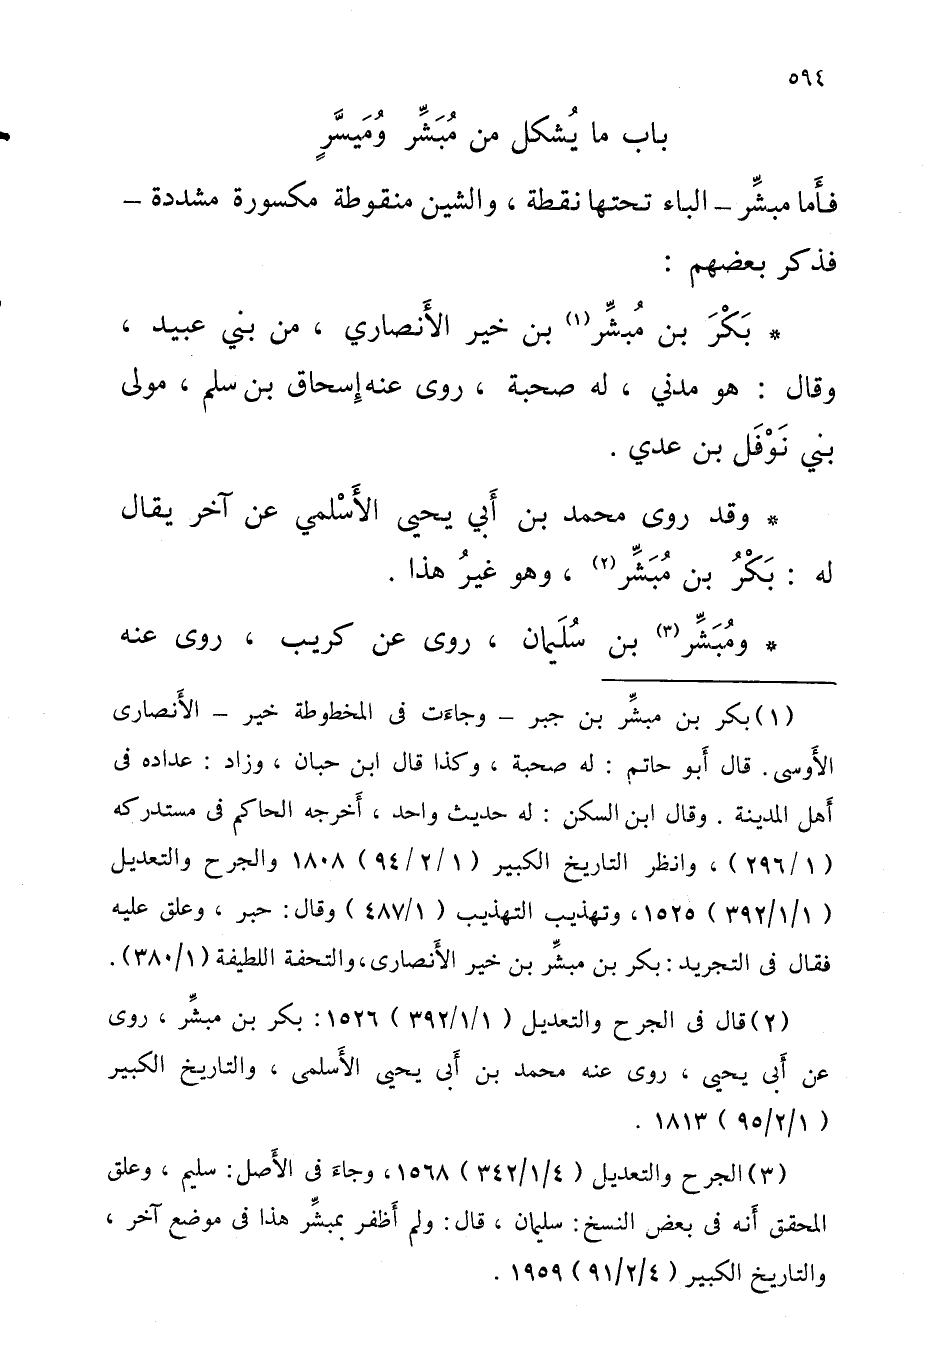 ٥٩٤
باب ما يُشكل من مُبَشِّر ومُيَسَّرٍ
فأَما مبشِّر – الباء تحتها نقطة ، والشين منقوطة مكسورة مشددة –
فذكر بعضهم :
* بَكْرَ بن مُبشِّر(١) بن خير الأَنصاري ، من بني عبيد ،
وقال : هو مدني ، له صحبة ، روى عنه إسحاق بن سلم ، مولى
بني نَوْفَل بن عدي .
* وقد روى محمد بن أَبي يحيى الأَسْلمي عن آخر يقال
له : بَكْرُ بن مُبَشِّر(٢) ، وهو غيرُ هذا .
* ومُبَشِّر(٣) بن سُلَيمان ، روى عن كريب ، روى عنه
(١) بكر بن مبشِّر بن جبر – وجاءَت فى المخطوطة خير – الأَنصارى
الأَوسى. قال أَبو حاتم : له صحبة ، وكذا قال ابن حبان ، وزاد : عداده فى
أَهل المدينة . وقال ابن السكن : له حديث واحد ، أَخرجه الحاكم فى مستدركه
( ٢٩٦/١ ) ، وانظر التاريخ الكبير ( ٩٤/٢/١ ) ١٨٠٨ والجرح والتعديل
( ٣٩٢/١/١ ) ١٥٢٥، وتهذيب التهذيب ( ٤٨٧/١ ) وقال: حبر ، وعلق عليه
فقال فى التجريد : بكر بن مبشِّر بن خير الأَنصارى، والتحفة اللطيفة (٣٨٠/١).
(٢) قال فى الجرح والتعديل ( ٣٩٢/١/١ ) ١٥٢٦: بكر بن مبشِّر ، روى
عن أَبى يحيى ، روى عنه محمد بن أَبى يحيى الأَسلمى ، والتاريخ الكبير
( ٩٥/٢/١ ) ١٨١٣ .
(٣) الجرح والتعديل ( ٣٤٢/١/٤ ) ١٥٦٨، وجاءَ فى الأَصل: سليم ، وعلق
المحقق أَنه فى بعض النسخ: سليمان ، قال: ولم أَظفر بمبشِّر هذا فى موضع آخر ،
والتاريخ الكبير ( ٩١/٢/٤ ) ١٩٥٩ .